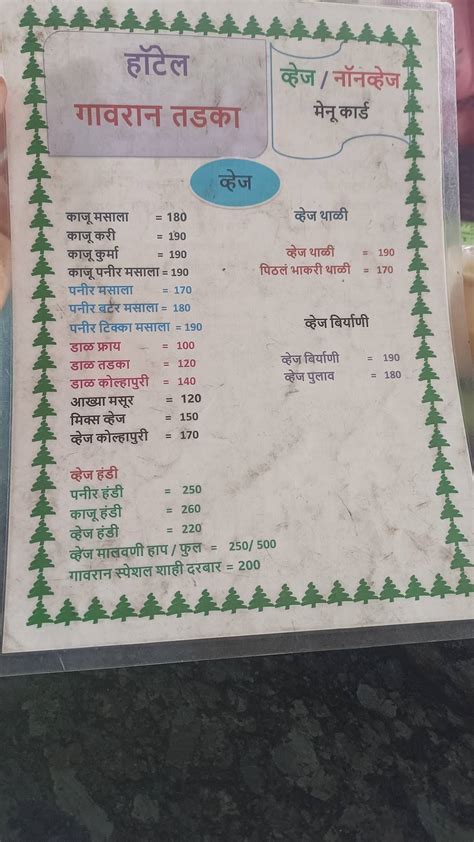 हॉटेल
गावरान तडका
व्हेज / नॉनव्हेज
मेनू कार्ड
व्हेज
काजू मसाला = 180
काजू करी = 190
काजू कुर्मा = 190
काजू पनीर मसाला = 190
पनीर मसाला = 170
पनीर बटर मसाला = 180
पनीर टिक्का मसाला = 190
डाळ फ्राय = 100
डाळ तडका = 120
डाळ कोल्हापुरी = 140
आख्या मसूर = 120
मिक्स व्हेज = 150
व्हेज कोल्हापुरी = 170
व्हेज हंडी
पनीर हंडी = 250
काजू हंडी = 260
व्हेज हंडी = 220
व्हेज मालवणी हाप / फुल = 250/ 500
गावरान स्पेशल शाही दरबार = 200
व्हेज थाळी
व्हेज थाळी = 190
पिठलं भाकरी थाळी = 170
व्हेज बिर्याणी
व्हेज बिर्याणी = 190
व्हेज पुलाव = 180